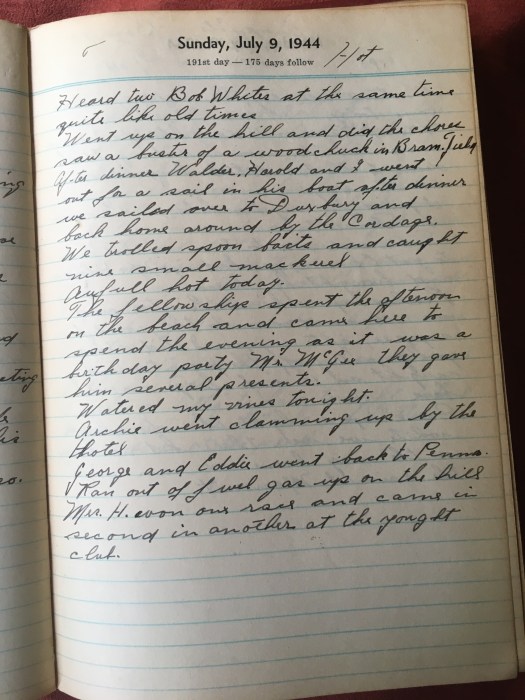 Sunday, July 9, 1944
191st day — 175 days follow
Hot
Heard two Bob Whites at the same time
quite like old times
Went up on the hill and did the chores
saw a buster of a woodchuck in Bram. Field
After dinner Walder, Harold and I went
out for a sail in his boat after dinner
we sailed over to Duxbury and
back home around by the Cordage.
We trolled spoon baits and caught
nine small mackerel
Awfull hot today.
The fellowship spent the afternoon
on the beach and came here to
spend the evening as it was a
birthday party Mr. McGee they gave
him several presents.
Watered my vines tonight.
Archie went clamming up by the
hotel
George and Eddie went back to Penna.
Ran out of fuel gas up on the hill
Mrs. H. won one race and came in
second in another at the yought
club.